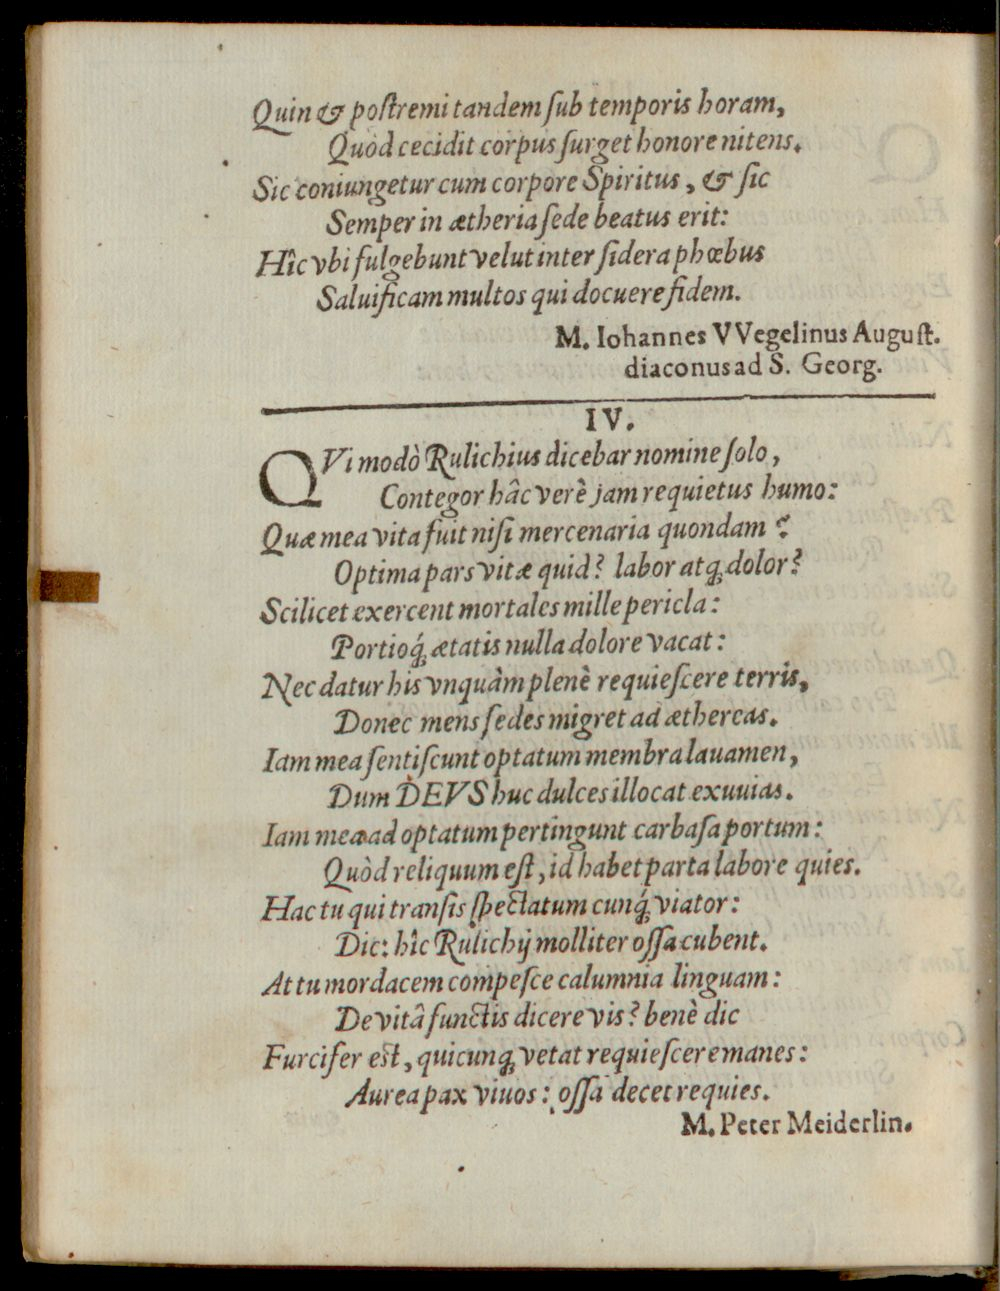 Quin & postremi tandem sub temporis horam,
Quòd cecidit corpus surget honore nitens.
Sic coniungetur cum corpore Spiritus, & sic
Semper in ætheria sede beatus erit:
Hîc vbi fulgebunt velut inter sidera phœbus
Saluificam multos qui docuere fidem.
M. Iohannes VVegelinus August.
diaconus ad S. Georg.
IV.
QVi modò Rulichius dicebar nomine solo,
Contegor hâc verè jam requietus humo:
Quæ mea vita fuit nisi mercenaria quondam?
Optima pars vitæ quid? labor atq; dolor?
Scilicet exercent mortales mille pericla:
Portioq́; ætatis nulla dolore vacat:
Nec datur his vnquàm plenè requiescere terris,
Donec mens sedes migret ad æthereas.
Iam mea sentiscunt optatum membra lauamen,
Dum DEVS huc dulces illocat exuuias.
Iam mea ad optatum pertingunt carbasa portum:
Quòd reliquum est, id habet parta labore quies.
Hac tu qui transis spectatum cunq́; viator:
Dic: hîc Rulichij molliter ossa cubent.
At tu mordacem compesce calumnia linguam:
De vitâ functis dicere vis? benè dic
Furcifer est, quicunq; vetat requiescere manes:
Aurea pax viuos: ossa decet requies.
M. Peter Meiderlin.